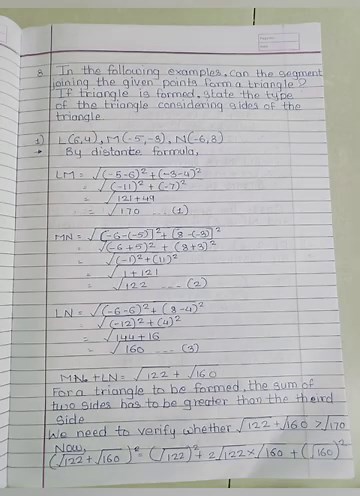 3. In the following examples, can the segment
joining the given points form a triangle?
If triangle is formed, state the type
of the triangle considering sides of the
triangle.
1) L(6,4), M(-5,-3), N(-6,8)
→ By distance formula,
LM = √(-5-6)² + (-3-4)²
= √(-11)² + (-7)²
= √121+49
= √170 ... (1)
MN = √[-6-(-5)]² + [8-(-3)]²
= √(-6+5)² + (8+3)²
= √(-1)² + (11)²
= √1+121
= √122 .... (2)
LN = √(-6-6)² + (8-4)²
= √(-12)² + (4)²
= √144+16
= √160 .... (3)
MN + LN = √122 + √160
For a triangle to be formed, the sum of
two sides has to be greater than the
side
We need to verify whether √122 + √160 > √170
Now,
(√122 + √160)² = (√122)² + 2√122 × √160 + (√160)²